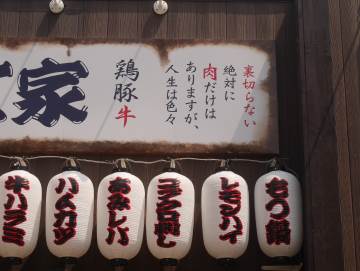 家
鶏豚牛
人生は色々
ありますが、
肉だけは
絶対に
裏切らない
牛ハラミ
ハムカツ
あみレバ
コブクロ刺し
レモンハイ
もつ鍋